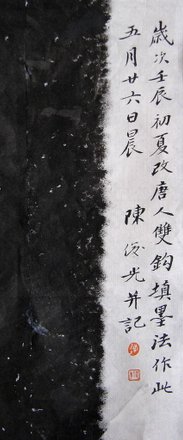 歲次壬辰初夏改唐人雙鈎填墨法作此
五月廿六日晨 陳 光并記